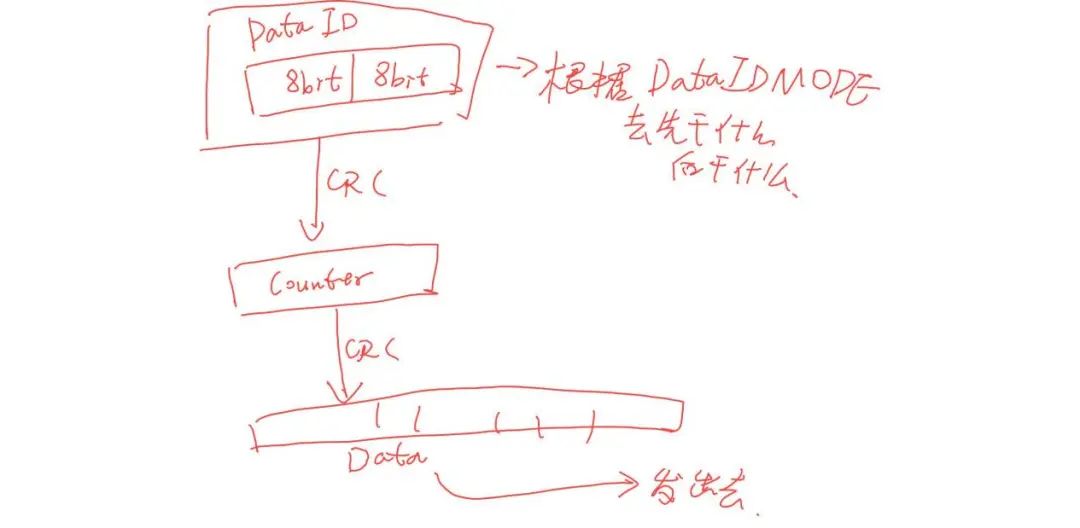 Data ID
8bit 8bit
→根据 DataIDMODE
去先干什么
后干什么
CRC
Counter
CRC
Data
发出去